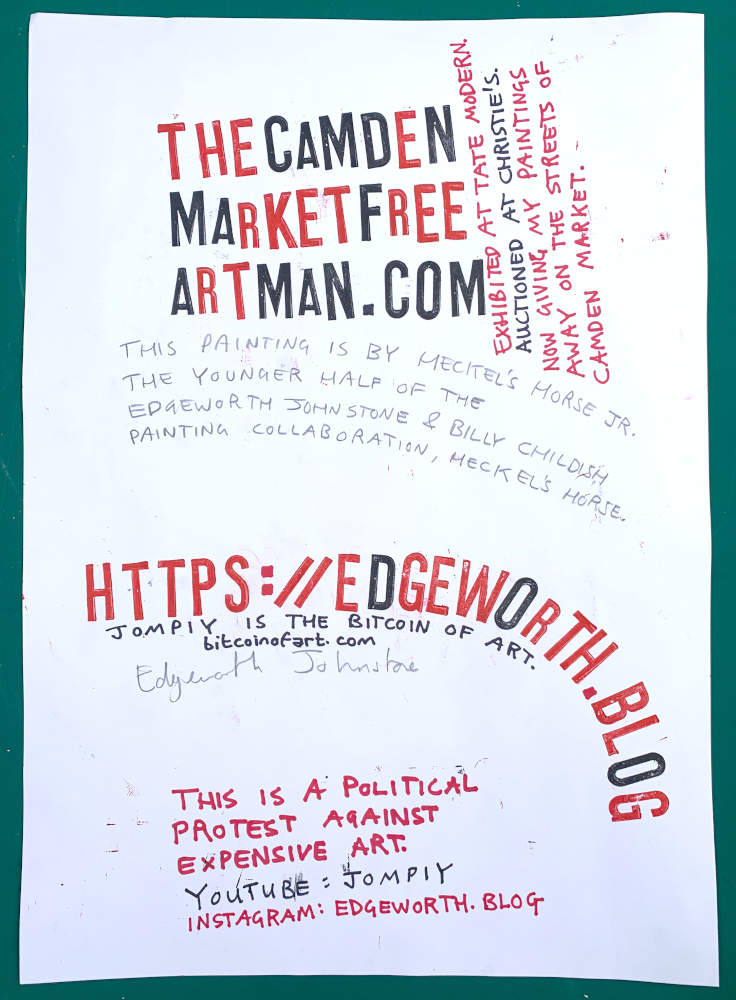 THE CAMDEN
MARKET FREE
ART MAN.COM
EXHIBITED AT TATE MODERN.
AUCTIONED AT CHRISTIE'S.
NOW GIVING MY PAINTINGS
AWAY ON THE STREETS OF
CAMDEN MARKET.
THIS PAINTING IS BY MECKEL'S HORSE JR.
THE YOUNGER HALF OF THE
EDGEWORTH JOHNSTONE & BILLY CHILDISH
PAINTING COLLABORATION, MECKEL'S HORSE.
HTTPS://EDGEWORTH.BLOG
JOMPIY IS THE BITCOIN OF ART.
bitcoinofart.com
Edgeworth Johnstone
THIS IS A POLITICAL
PROTEST AGAINST
EXPENSIVE ART.
YOUTUBE: JOMPIY
INSTAGRAM: EDGEWORTH.BLOG